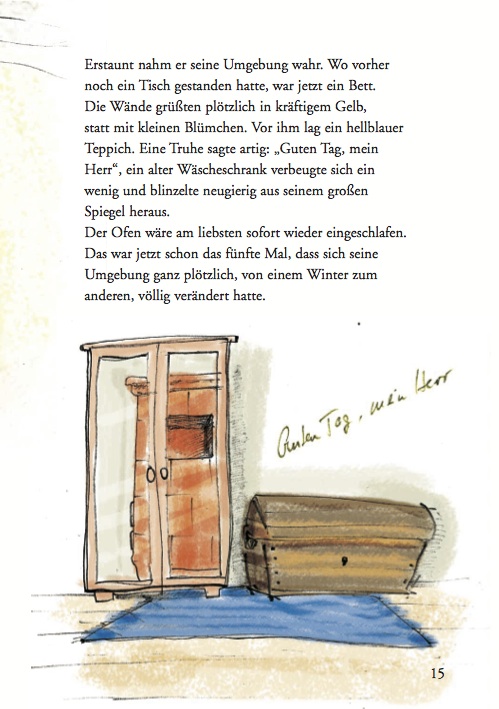 Erstaunt nahm er seine Umgebung wahr. Wo vorher
noch ein Tisch gestanden hatte, war jetzt ein Bett.
Die Wände grüßten plötzlich in kräftigem Gelb,
statt mit kleinen Blümchen. Vor ihm lag ein hellblauer
Teppich. Eine Truhe sagte artig: „Guten Tag, mein
Herr“, ein alter Wäscheschrank verbeugte sich ein
wenig und blinzelte neugierig aus seinem großen
Spiegel heraus.
Der Ofen wäre am liebsten sofort wieder eingeschlafen.
Das war jetzt schon das fünfte Mal, dass sich seine
Umgebung ganz plötzlich, von einem Winter zum
anderen, völlig verändert hatte.
Guten Tag, mein Herr
15